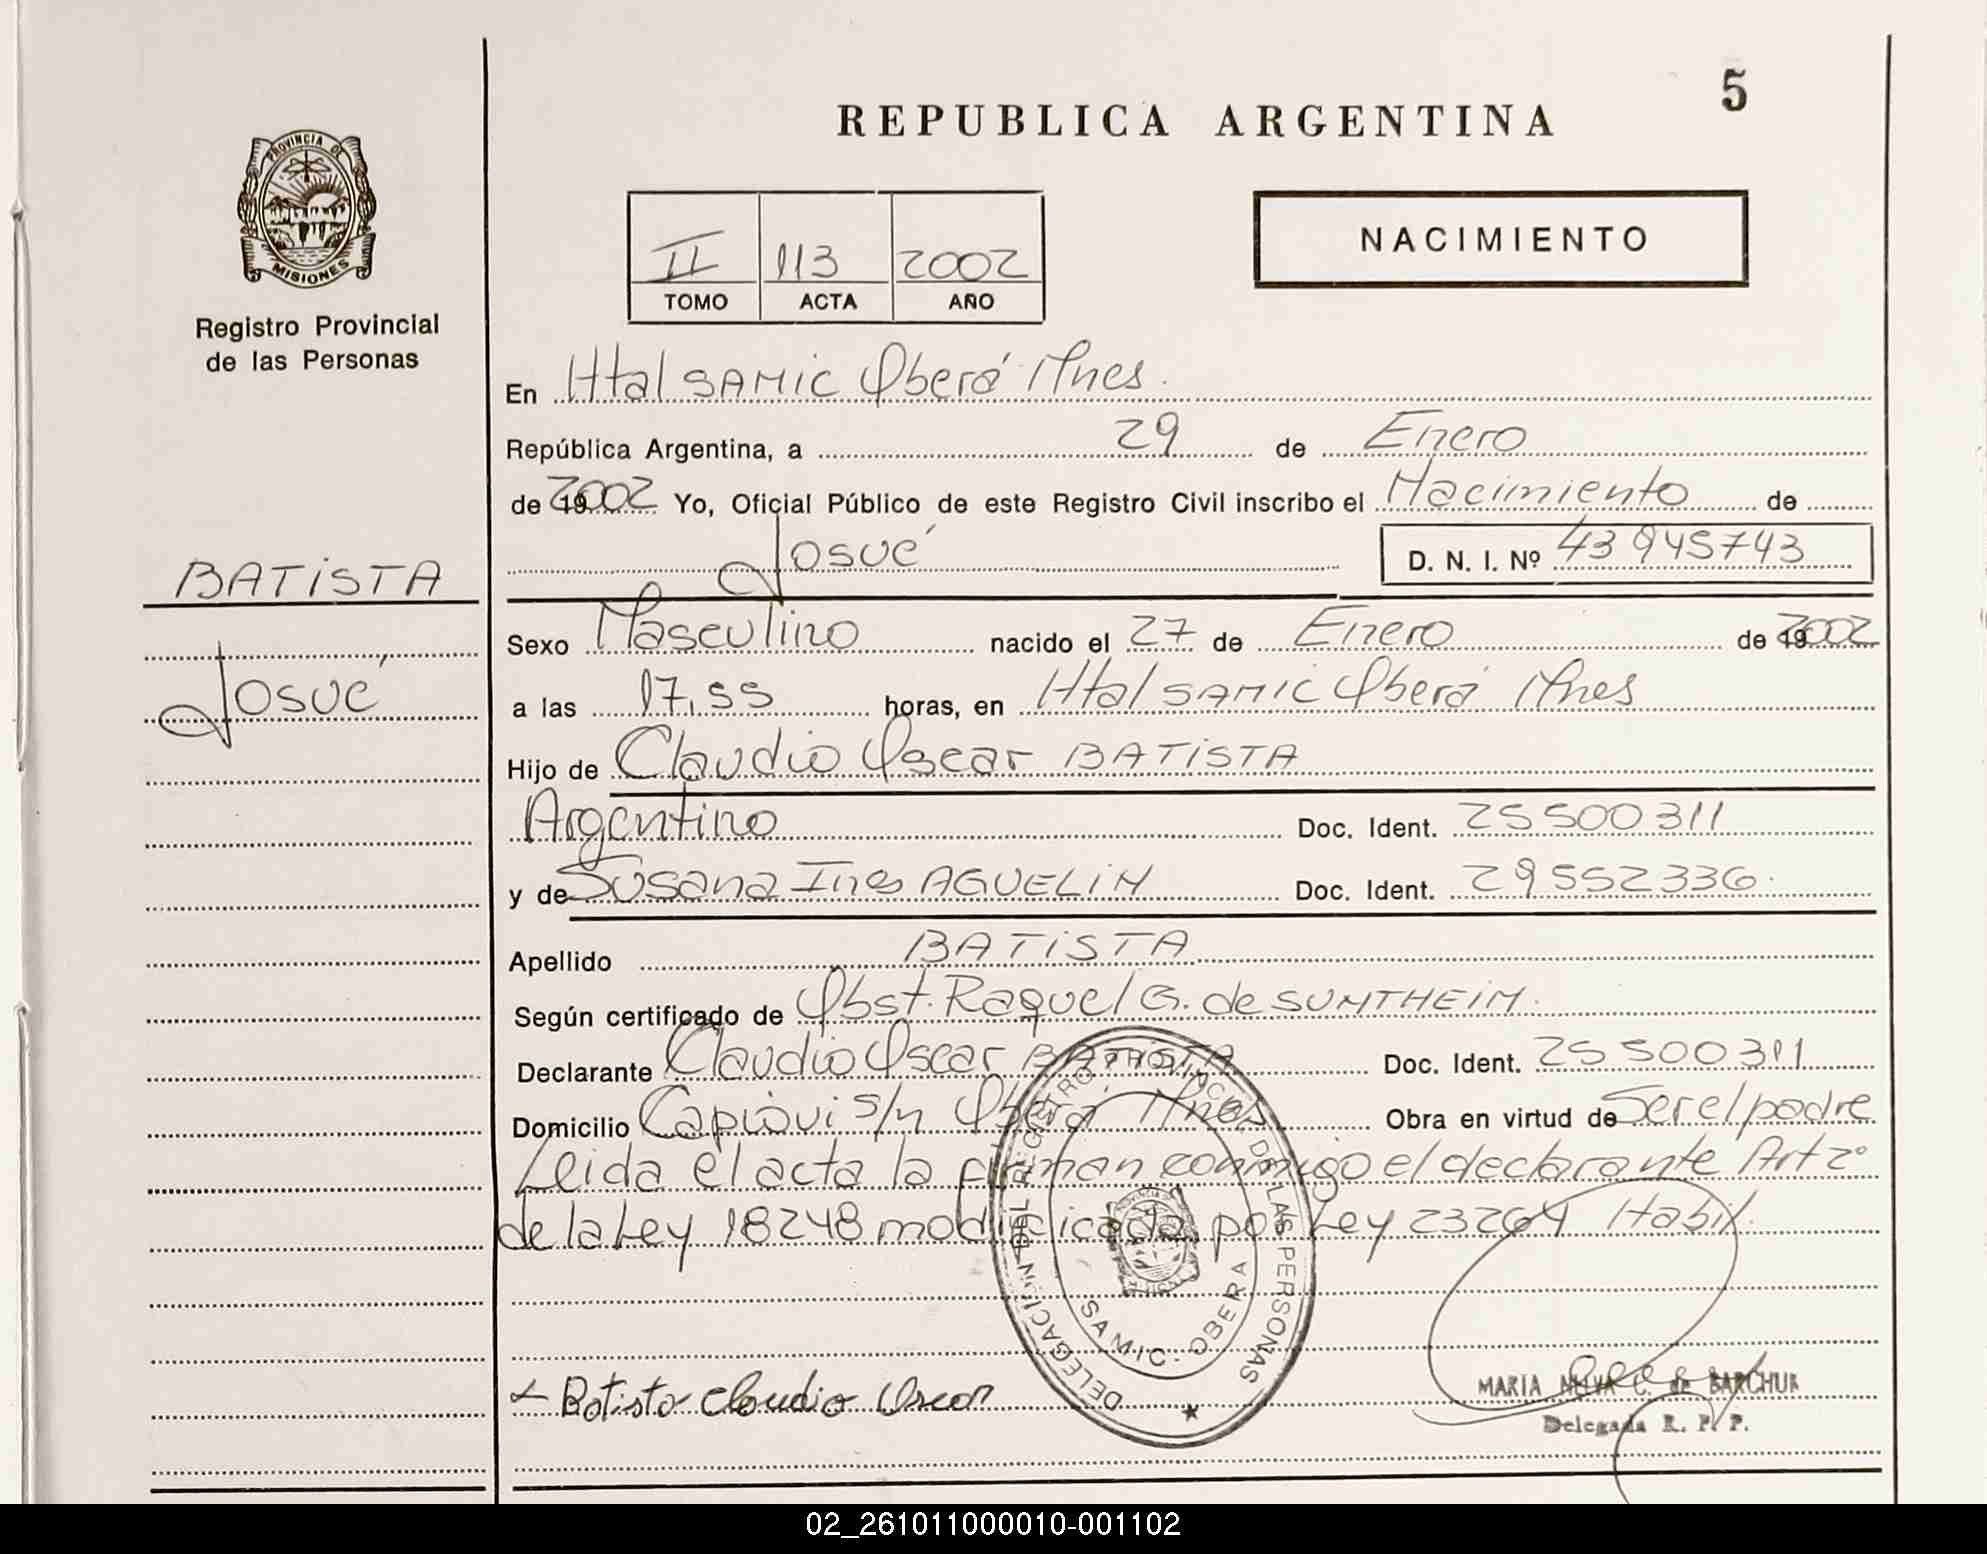 5
REPUBLICA ARGENTINA
PROVINCIA DE
MISIONES
Registro Provincial
de las Personas
II 113 2002
TOMO ACTA AÑO
NACIMIENTO
En Htal SAMIC Oberá Mnes.
República Argentina, a 29 de Enero
de 19 2002 Yo, Oficial Público de este Registro Civil inscribo el Nacimiento de
Josué D. N. I. Nº 43945743
BATISTA
Josué
Sexo Masculino nacido el 27 de Enero de 19 2002
a las 17,55 horas, en Htal SAMIC Oberá Mnes
Hijo de Claudio Oscar BATISTA
Argentino Doc. Ident. 25500311
y de Susana Ines AGUELIN Doc. Ident. 29552336.
Apellido BATISTA
Según certificado de Obst. Raquel G. de SUNTHEIM.
Declarante Claudio Oscar BATISTA Doc. Ident. 25500311
Domicilio Capiovi s/n Oberá Mnes Obra en virtud de Ser el padre
Leida el acta la firman conmigo el declarante Art 2º
de la Ley 18248 modificada por Ley 23264 Habil.
DELEGACION DEL REGISTRO PROVINCIAL DE LAS PERSONAS
SAMIC. OBERA
Batista Claudio Oscar
MARIA NELVA C. de BARCHUK
Delegada R. P. P.
02_261011000010-001102